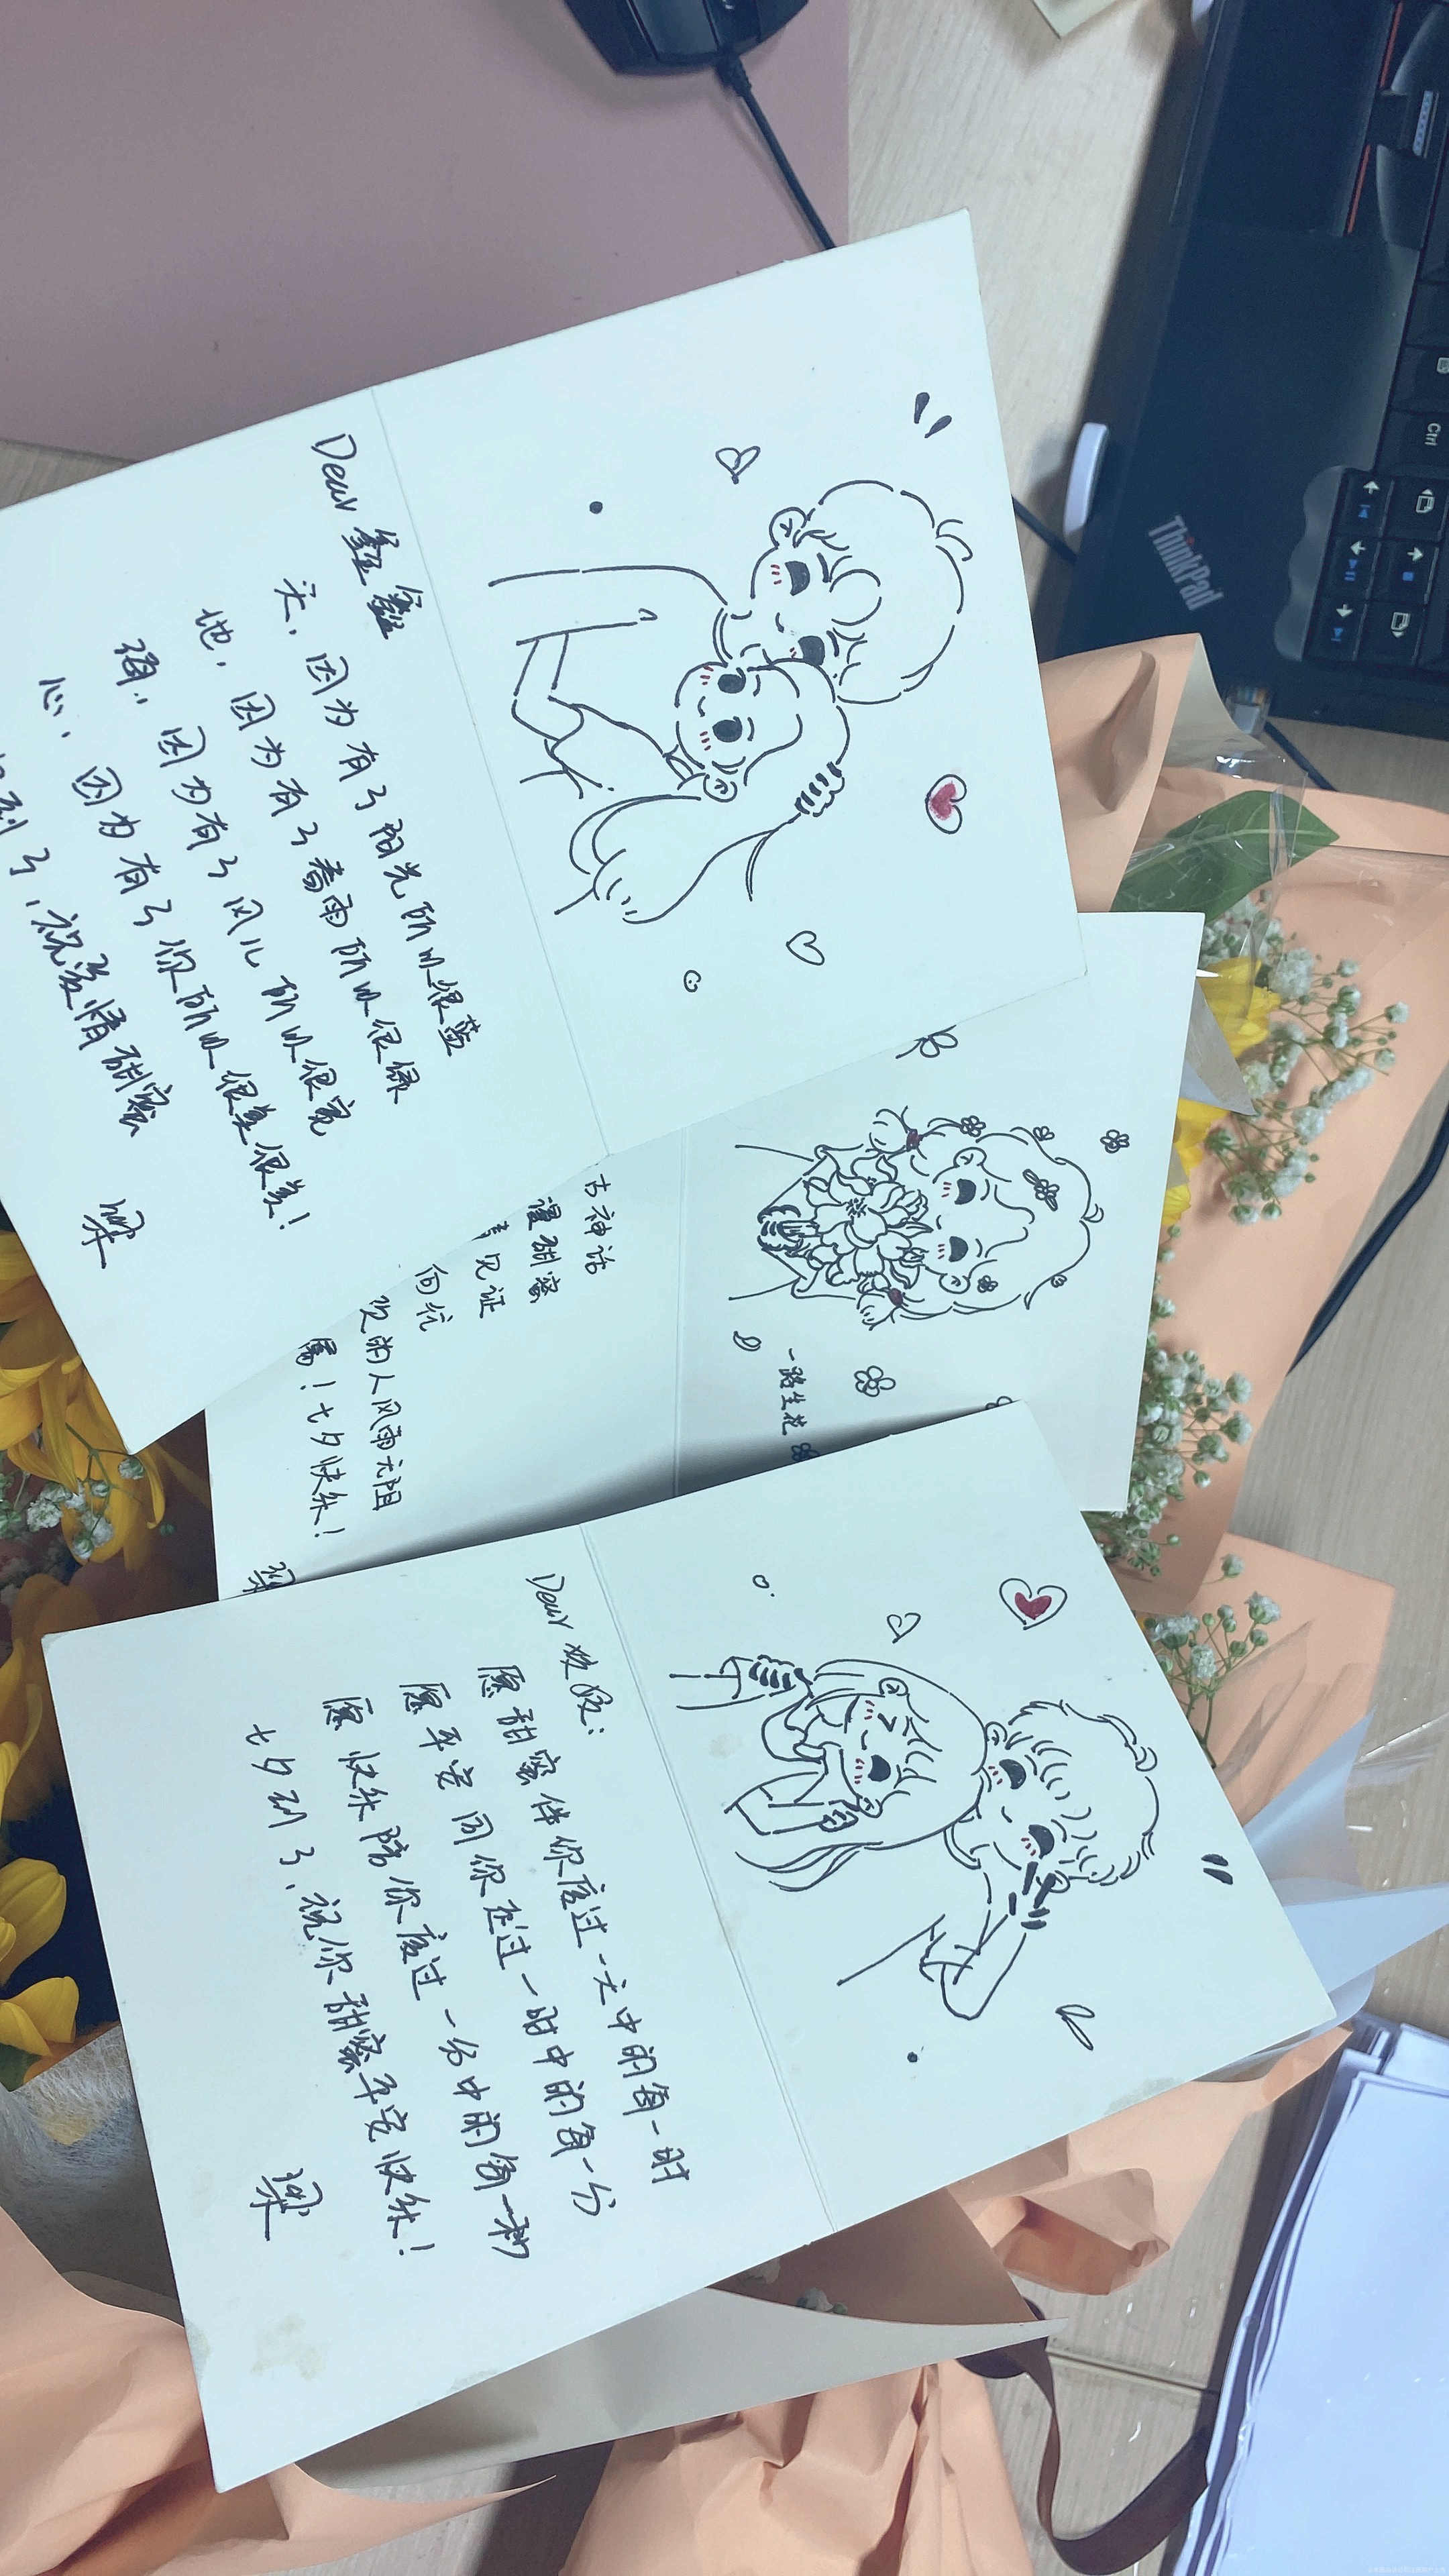 Dear 鑫鑫
天，因为有了阳光所以很蓝
地，因为有了春雨所以很绿
海，因为有了风儿所以很宽
心，因为有了你所以很美很美！
到了，祝爱情甜蜜
古神话
漫甜蜜
见证
何忧
的人风雨无阻
属！七夕快乐！
一路生花
Dear
愿甜蜜伴你度过一天中的每一时
愿平安同你走过一时中的每一分
愿快乐陪你度过一分中的每一秒
七夕到了，祝你甜蜜平安快乐！
ThinkPad
Ctrl